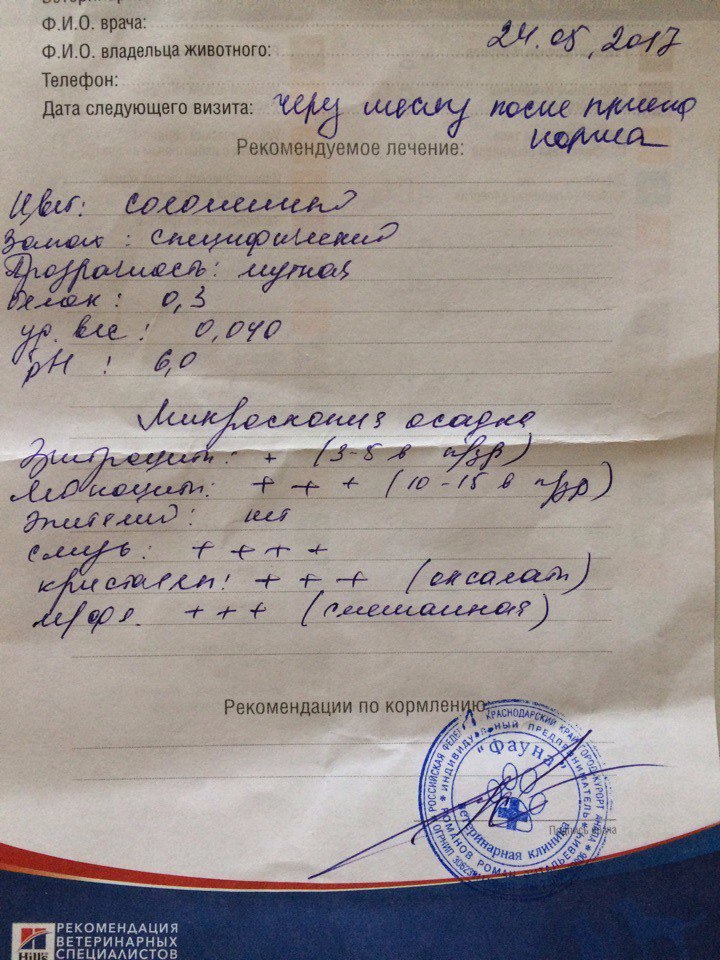 Ф.И.О. врача:
24.05.2017
Ф.И.О. владельца животного:
Телефон:
Дата следующего визита: через месяц после приема
корма
Рекомендуемое лечение:
Цвет: соломенный
Запах: специфический
Прозрачность: мутная
белок: 0,3
уд. вес: 0,040
pH: 6,0
Микроскопия осадка
Эритроциты: + (3-5 в п/зр)
Лейкоциты: + + + (10-15 в п/зр)
Эпителий: нет
слизь: + + + +
кристаллы: + + + (оксалаты)
м/фл. + + + (смешанная)
Рекомендации по кормлению:
РОССИЙСКАЯ ФЕДЕР КРАСНОДАРСКИЙ КРАЙ ГОРОД-КУРОРТ АНАПА
ИНДИВИДУАЛЬНЫЙ ПРЕДПРИНИМАТЕЛЬ
"Фауна"
ветеринарная клиника
РОМАНОВ РОМАН ВИТАЛЬЕВИЧ
Подпись врача
Hill's
РЕКОМЕНДАЦИЯ
ВЕТЕРИНАРНЫХ
СПЕЦИАЛИСТОВ